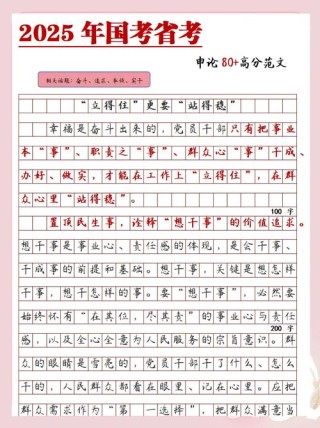 2025 年国考省考
申论 80+高分范文
相关话题：奋斗、追求、奉献、实干
“立得住”更要“站得稳”
幸福是奋斗出来的，党员干部只有把事业
本“事”、职责之“事”、群众心“事”干成、
办好、做实，才能在工作上“立得住”，在群
众心里“站得稳”。
100 字
置顶民生事，诠释“想干事”的价值追求。
想干事是事业心、责任感的体现，是会干事、
干成事的前提和基础。想干事，关键是想怎样
干事，想干怎样的事。“想干事”，必然要
始终怀有“在其位，尽其责”的事业心与责任
200 字
感，以及全心全意为人民服务的宗旨意识。群
众的眼睛是雪亮的，党员干部干了什么、怎么
干的，人民群众都看在眼里、记在心里。应把
群众需求作为“第一选择”，把群众满意当